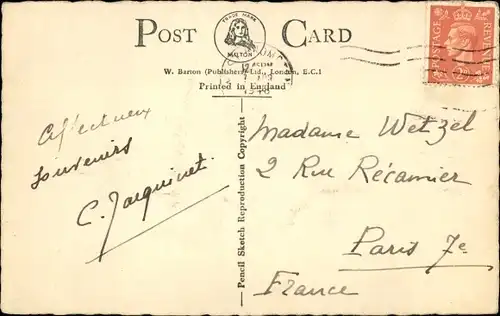 POST CARD
TRADE MARK
MILTON
W. Barton (Publishers) Ltd., London, E.C.1
Printed in England
1948
POSTAGE
REVENUE
Affectueux
souvenirs
C. Jacquinet.
Pencil Sketch Reproduction Copyright
Madame Wetzel
2 Rue Récamier
Paris 7e
France